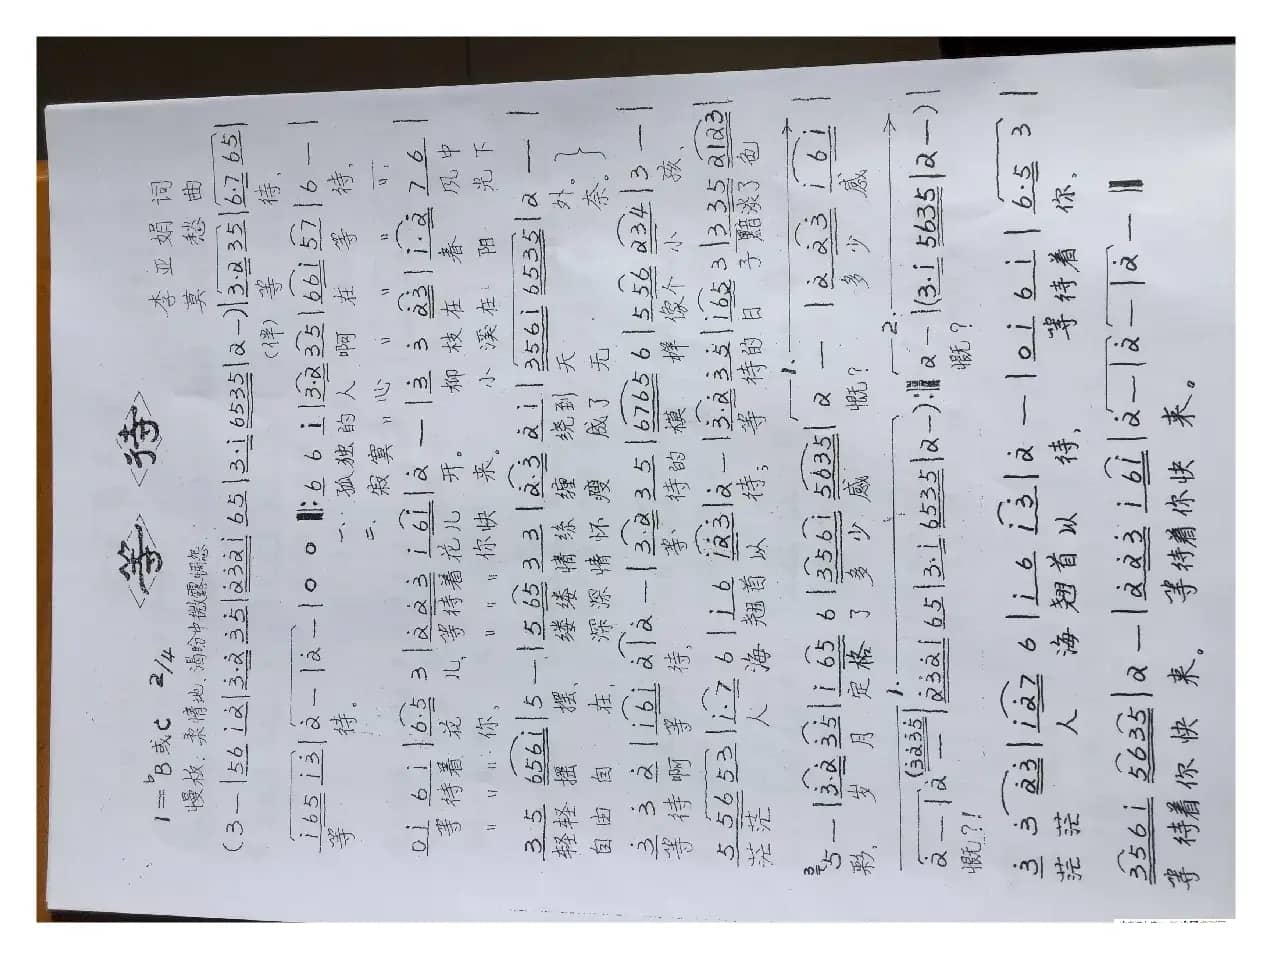 等 待
1=ᵇB或C 2/4
李亚娟 词
慢板、柔情地、渴盼中微露惆怅
莫愁 曲
(3 — | 5 6 i 2 | 3·2 3 5 | 2 3 2 i 6 5 | 3·i 6535 | 2 —) | 3·2 3 5 | 6·7 6 5 |
(伴) 等 待,
i 6 5 i 3 | 2 — | 2 — | 0 0 ‖: 6 6 i | 3·2 3 5 | 6 6 i 5 7 | 6 — |
等 待。 一、孤独的人啊在等待,
二、寂寞〃心〃〃〃〃:
0 i 6 i | 6·5 3 | 2 2 2 3 i 6 i | 2 — | 3 3 2 3 | i·2 7 6 |
等待着花儿,等待着花儿开。柳枝在春风中
〃〃〃你,〃〃〃你快来。小溪在阳光下
3·5 6 5 6 i | 5 — | 5 6 5 3 3 | 2·3 2 i | 3 5 6 i 6 5 3 5 | 2 — |
轻轻摇摆,缕缕情缘缠绕到天外。
自由自在,深深情怀瘦成了无奈。
3 3 2 | i 6 i 2 | 2 — | 3·2 3 5 | 6 7 6 5 6 | 5 5 6 2 3 4 | 3 — |
等待啊等待,等待的模样像个小孩,
5 5 6 5 3 | i·7 6 | i 6 i 2 3 | 2 — | 3·2 3 5 | i 6 5 3 | 3 3 5 2 1 2 3 |
茫茫人海翘首以待;等待的日子黯淡了色
5 — | 3·2 3 5 | i 6 5 6 | 3 5 6 i 5 6 3 5 | 2 — | 2 2 3 i 6 i |
彩,岁月定格了多少感慨?多少感
2 — | 2 — | 2 3 2 i 6 5 | 3·i 6 5 3 5 | 2 —) :‖ 2 — | (3·i 5 6 3 5 | 2 —) |
慨?! 慨?
3 3 2 3 | i 2 7 6 | i 6 i 3 | 2 — | 0 i 6 i | 6·5 3 |
茫茫人海翘首以待,等待着你,
3 5 6 i 5 6 3 5 | 2 — | 2 2 2 3 i 6 i | 2 — | 2 — | 2 — ‖
等待着你快来。等待着你快来。